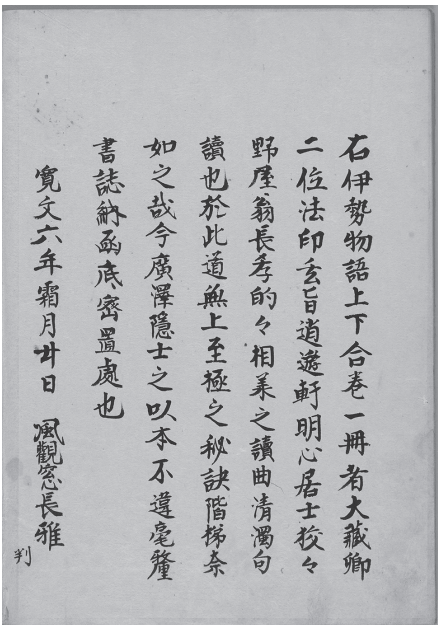 右伊勢物語上下合巻一冊者大藏卿
二位法印玄旨逍遊軒明心居士挍々
野屋翁長孝的々相羕之讀曲清濁句
讀也於此道無上至極之秘訣階梯奈
如之哉今廣澤隱士之以本不違毫釐
書誌納函底密置處也
寛文六年霜月廿日 風觀窓長雅
判